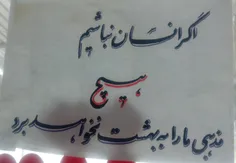 اگر انسان نباشیم
هیچ
مذهبی ما را به بهشت نخواهد برد